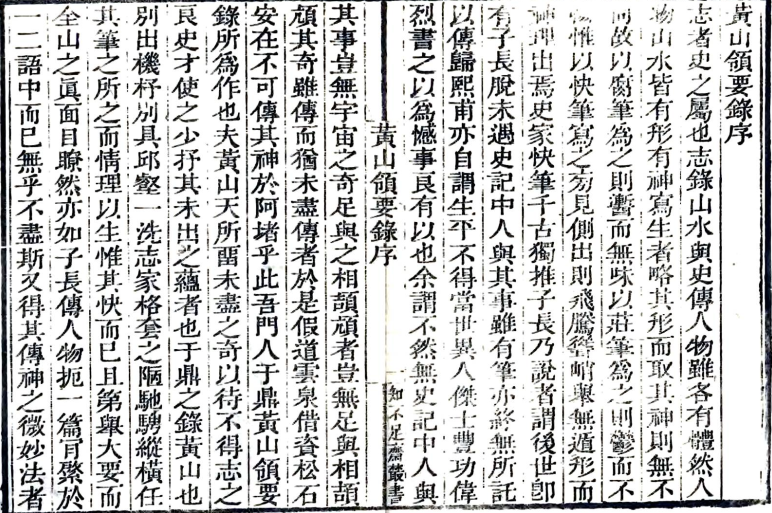 黃山領要錄序
志者史之屬也志錄山水與史傳人物雖各有體然人
物山水皆有形有神寫生者略其形而取其神則無不
肖故以腐筆為之則謭而無味以莊筆為之則鬱而不
惟以快筆寫之旁見側出則飛騰聳峭舉無遁形而
神理出焉史家快筆千古獨推子長乃說者謂後世卽
有子長脫未遇史記中人與其事雖有筆亦終無所託
以傳歸熙甫亦自謂生平不得當世異人傑士豐功偉
烈書之以為憾事良有以也余謂不然無史記中人與
黃山領要錄序
知不足齋叢書
其事豈無宇宙之奇足與之相頡頏者豈無足與相頡
頏其奇雖傳而猶未盡傳者於是假道雲泉借資松石
安在不可傳其神於阿堵乎此吾門人于鼎黃山領要
錄所為作也夫黃山天所留未盡之奇以待不得志之
良史才使之少抒其未出之蘊者也于鼎之錄黃山也
別出機杼別具邱壑一洗志家格套之陋馳騁縱橫任
其筆之所之而情理以生惟其快而已且第舉大要而
全山之眞面目瞭然亦如子長傳人物扼一篇肯綮於
一二語中而已無乎不盡斯又得其傳神之微妙法者